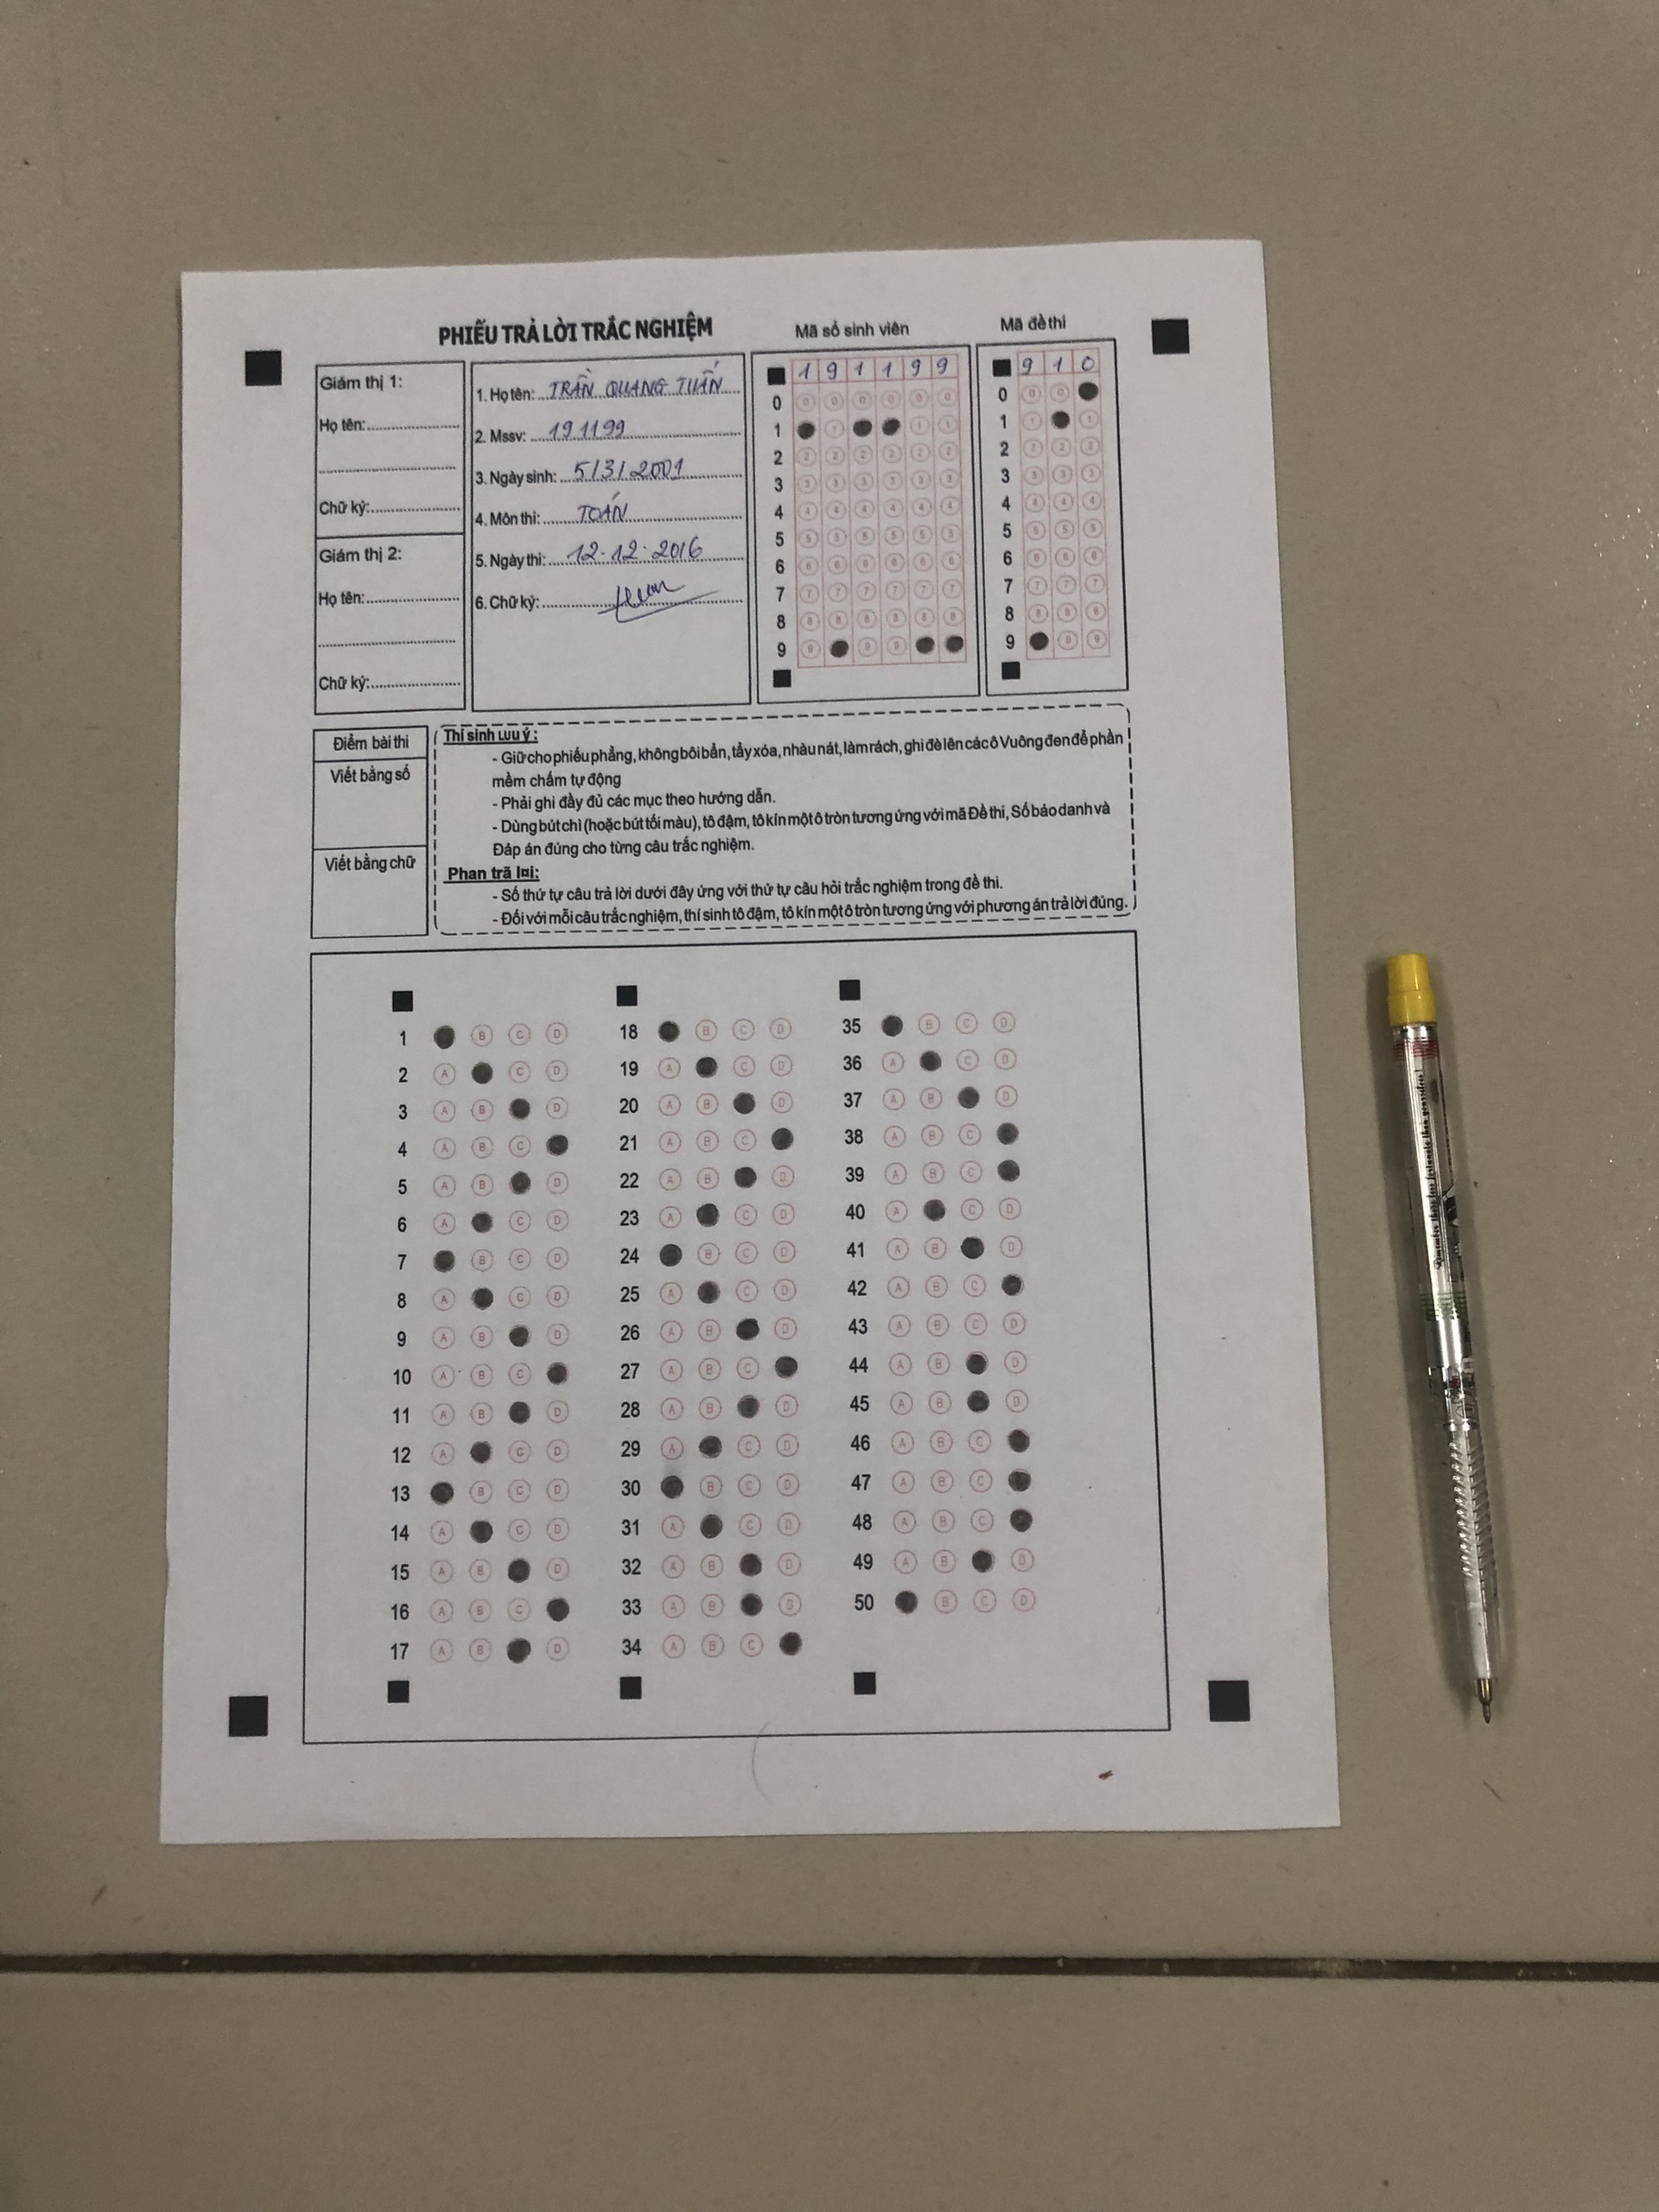 PHIẾU TRẢ LỜI TRẮC NGHIỆM
Giám thị 1:
Họ tên:
Chữ ký:
Giám thị 2:
Họ tên:
Chữ ký:
1. Họ tên: TRẦN QUANG TUẤN
2. Mssv: 191199
3. Ngày sinh: 5/3/2001
4. Môn thi: TOÁN
5. Ngày thi: 12.12.2016
6. Chữ ký:
Mã số sinh viên
1 9 1 1 9 9
0 0 0 0 0 0 0
1 1 1 1
2 2 2 2 2 2 2
3 3 3 3 3 3 3
4 4 4 4 4 4 4
5 5 5 5 5 5 5
6 6 6 6 6 6 6
7 7 7 7 7 7 7
8 8 8 8 8 8 8
9 9 9 9
Mã đề thi
9 1 0
0 0 0
1 1 1
2 2 2 2
3 3 3 3
4 4 4 4
5 5 5 5
6 6 6 6
7 7 7 7
8 8 8 8
9 9 9
Điểm bài thi
Viết bằng số
Viết bằng chữ
Thí sinh Lưu ý :
- Giữ cho phiếu phẳng, không bôi bẩn, tẩy xóa, nhàu nát, làm rách, ghi đè lên các ô Vuông đen để phần
mềm chấm tự động
- Phải ghi đầy đủ các mục theo hướng dẫn.
- Dùng bút chì (hoặc bút tối màu), tô đậm, tô kín một ô tròn tương ứng với mã Đề thi, Số báo danh và
Đáp án đúng cho từng câu trắc nghiệm.
Phan trã l¤i:
- Số thứ tự câu trả lời dưới đây ứng với thứ tự câu hỏi trắc nghiệm trong đề thi.
- Đối với mỗi câu trắc nghiệm, thí sinh tô đậm, tô kín một ô tròn tương ứng với phương án trả lời đúng.
1 B C D
2 A C D
3 A B D
4 A B C
5 A B D
6 A C D
7 B C D
8 A C D
9 A B D
10 A B C
11 A B D
12 A C D
13 B C D
14 A C D
15 A B D
16 A B C
17 A B D
18 B C D
19 A C D
20 A B D
21 A B C
22 A B D
23 A C D
24 B C D
25 A C D
26 A B D
27 A B C
28 A B D
29 A C D
30 B C D
31 A C D
32 A B D
33 A B D
34 A B C
35 B C D
36 A C D
37 A B D
38 A B C
39 A B C
40 A C D
41 A B D
42 A B C
43 A B C D
44 A B D
45 A B D
46 A B C
47 A B C
48 A B C
49 A B D
50 B C D